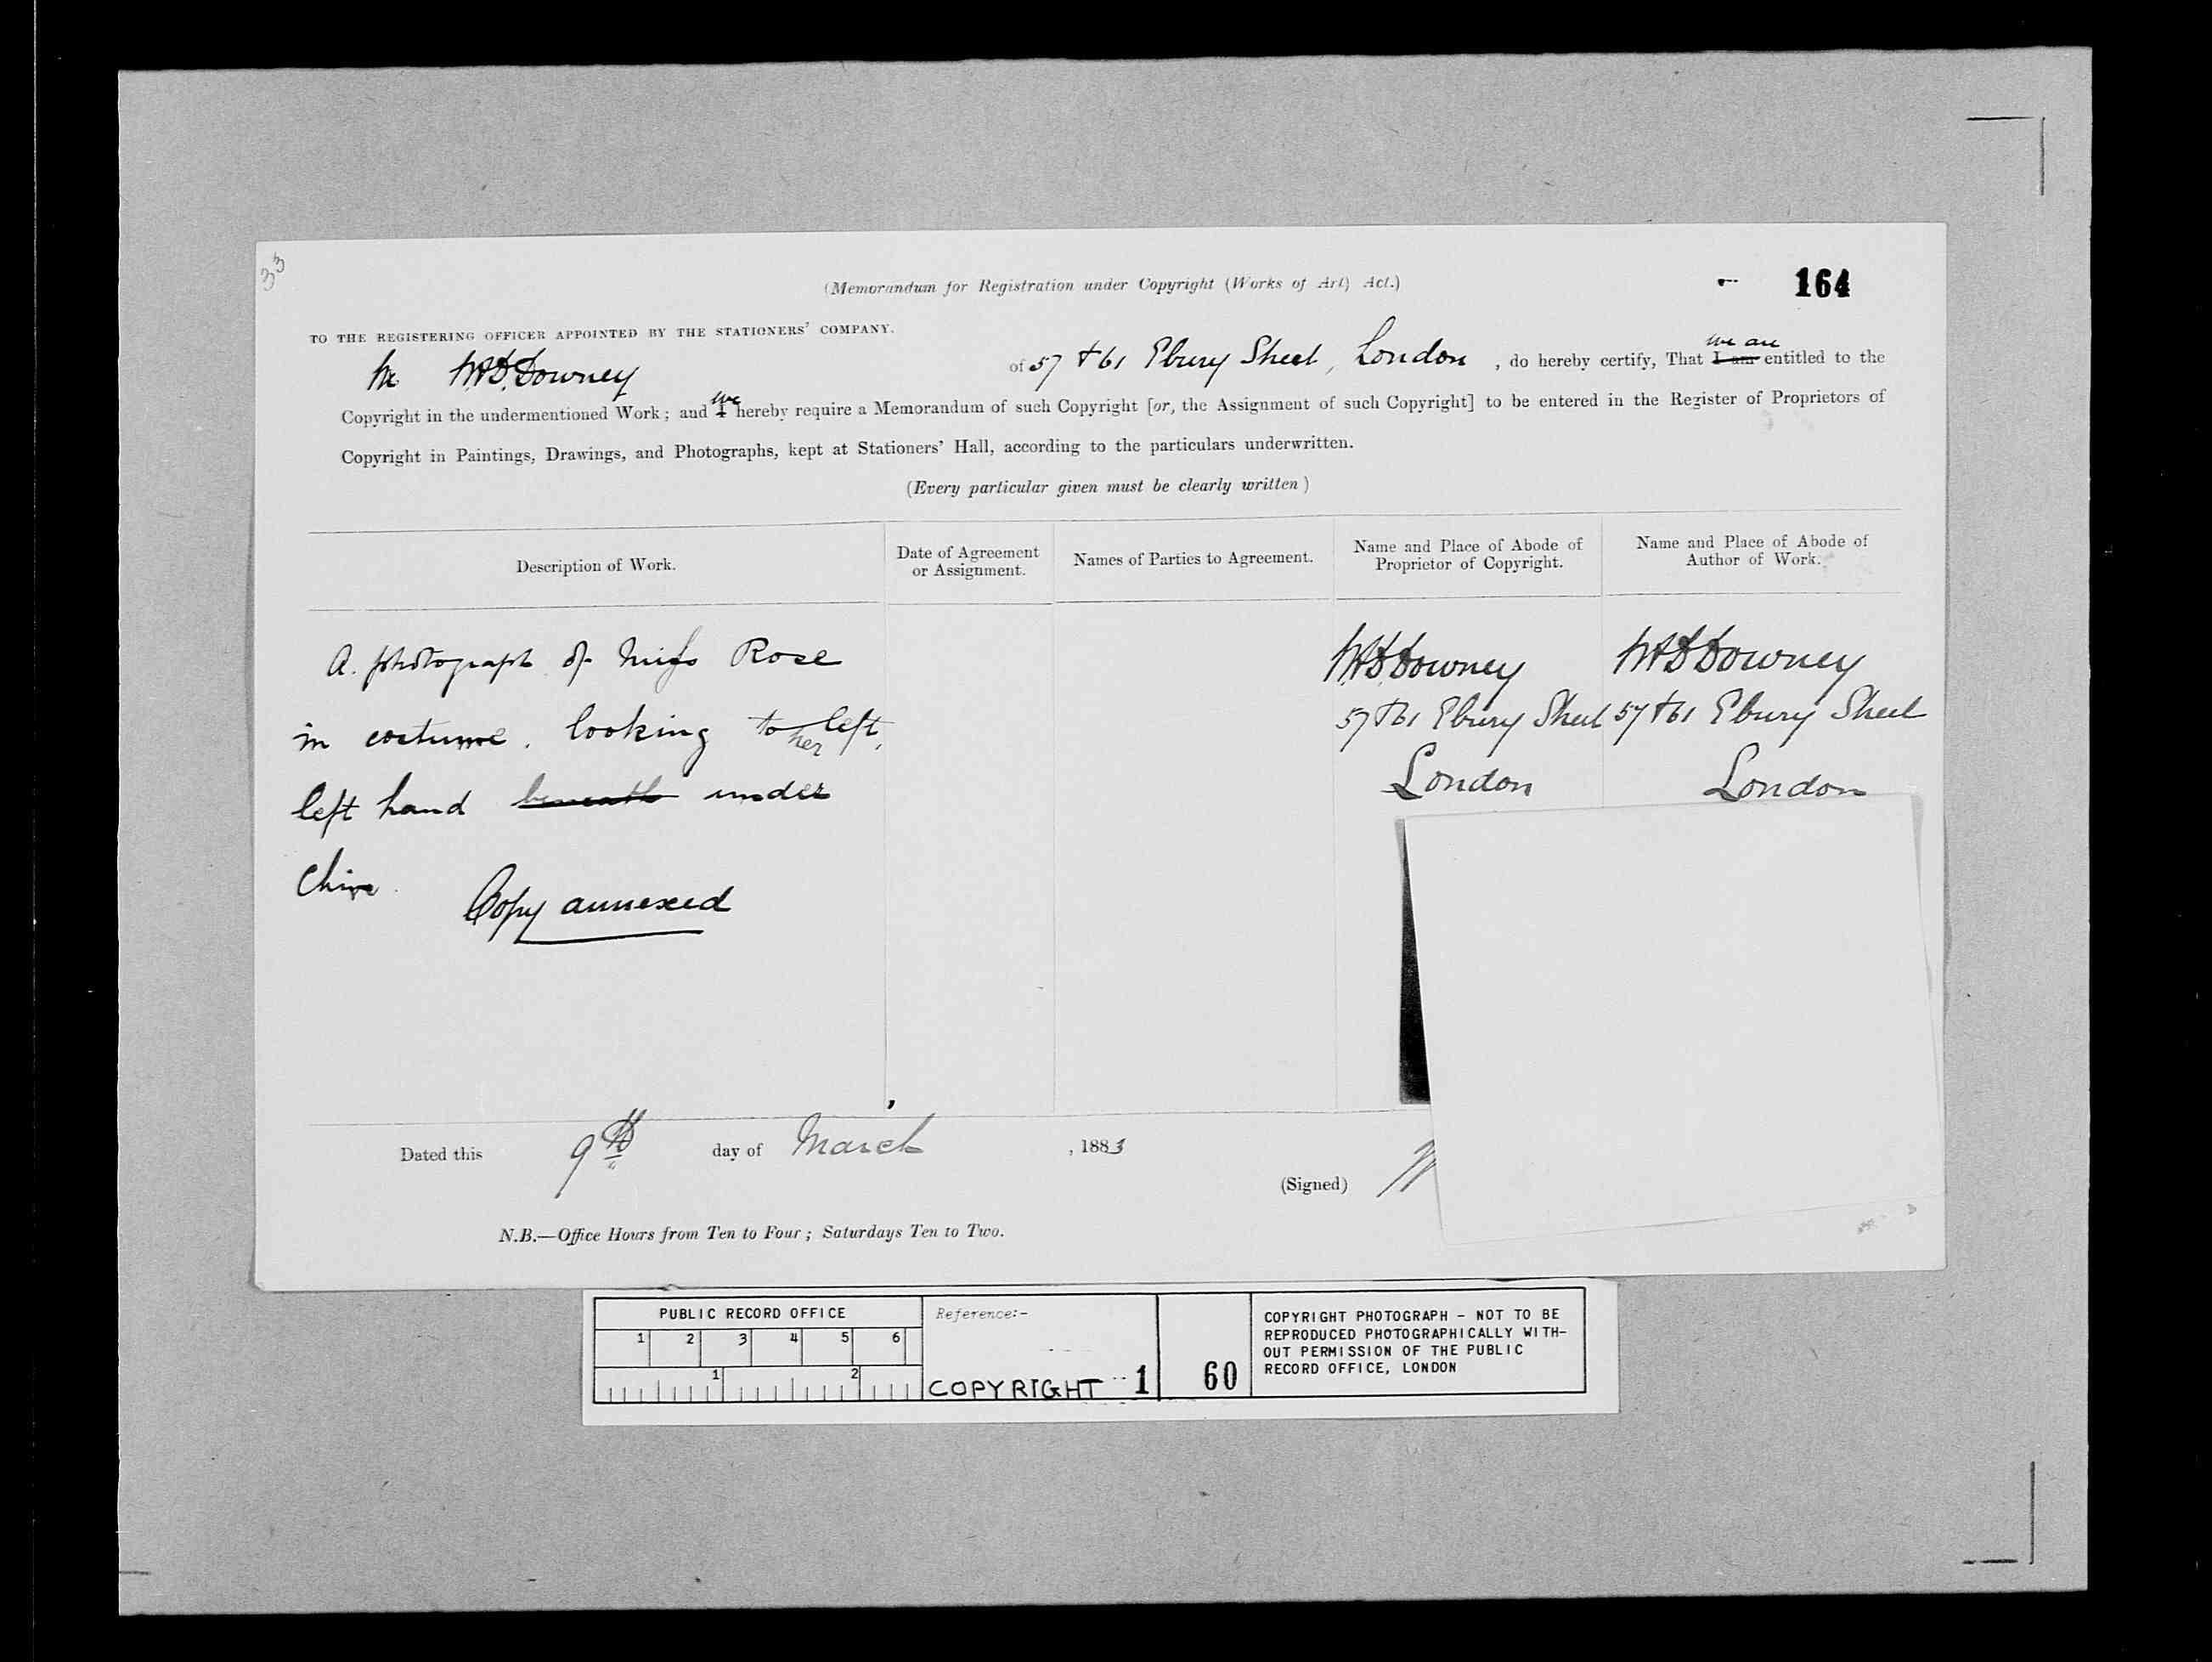 33
(Memorandum for Registration under Copyright (Works of Art) Act.)
164
TO THE REGISTERING OFFICER APPOINTED BY THE STATIONERS' COMPANY.
We W&D. Downey of 57 & 61 Ebury Street, London, do hereby certify, That I am we are entitled to the
Copyright in the undermentioned Work; and I we hereby require a Memorandum of such Copyright [or, the Assignment of such Copyright] to be entered in the Register of Proprietors of
Copyright in Paintings, Drawings, and Photographs, kept at Stationers' Hall, according to the particulars underwritten.
(Every particular given must be clearly written)
Description of Work.
Date of Agreement
or Assignment.
Names of Parties to Agreement.
Name and Place of Abode of
Proprietor of Copyright.
Name and Place of Abode of
Author of Work.
A. photograph of Miss Rose
in costume. looking to her left,
left hand beneath under
Chin.
Copy annexed
W&D. Downey
57 & 61 Ebury Street
London
W&D Downey
57 & 61 Ebury Street
London
Dated this 9th day of March, 1883
(Signed) W
N.B.—Office Hours from Ten to Four; Saturdays Ten to Two.
PUBLIC RECORD OFFICE
1 2 3 4 5 6
1 2
Reference:-
COPYRIGHT 1
60
COPYRIGHT PHOTOGRAPH - NOT TO BE
REPRODUCED PHOTOGRAPHICALLY WITH-
OUT PERMISSION OF THE PUBLIC
RECORD OFFICE, LONDON